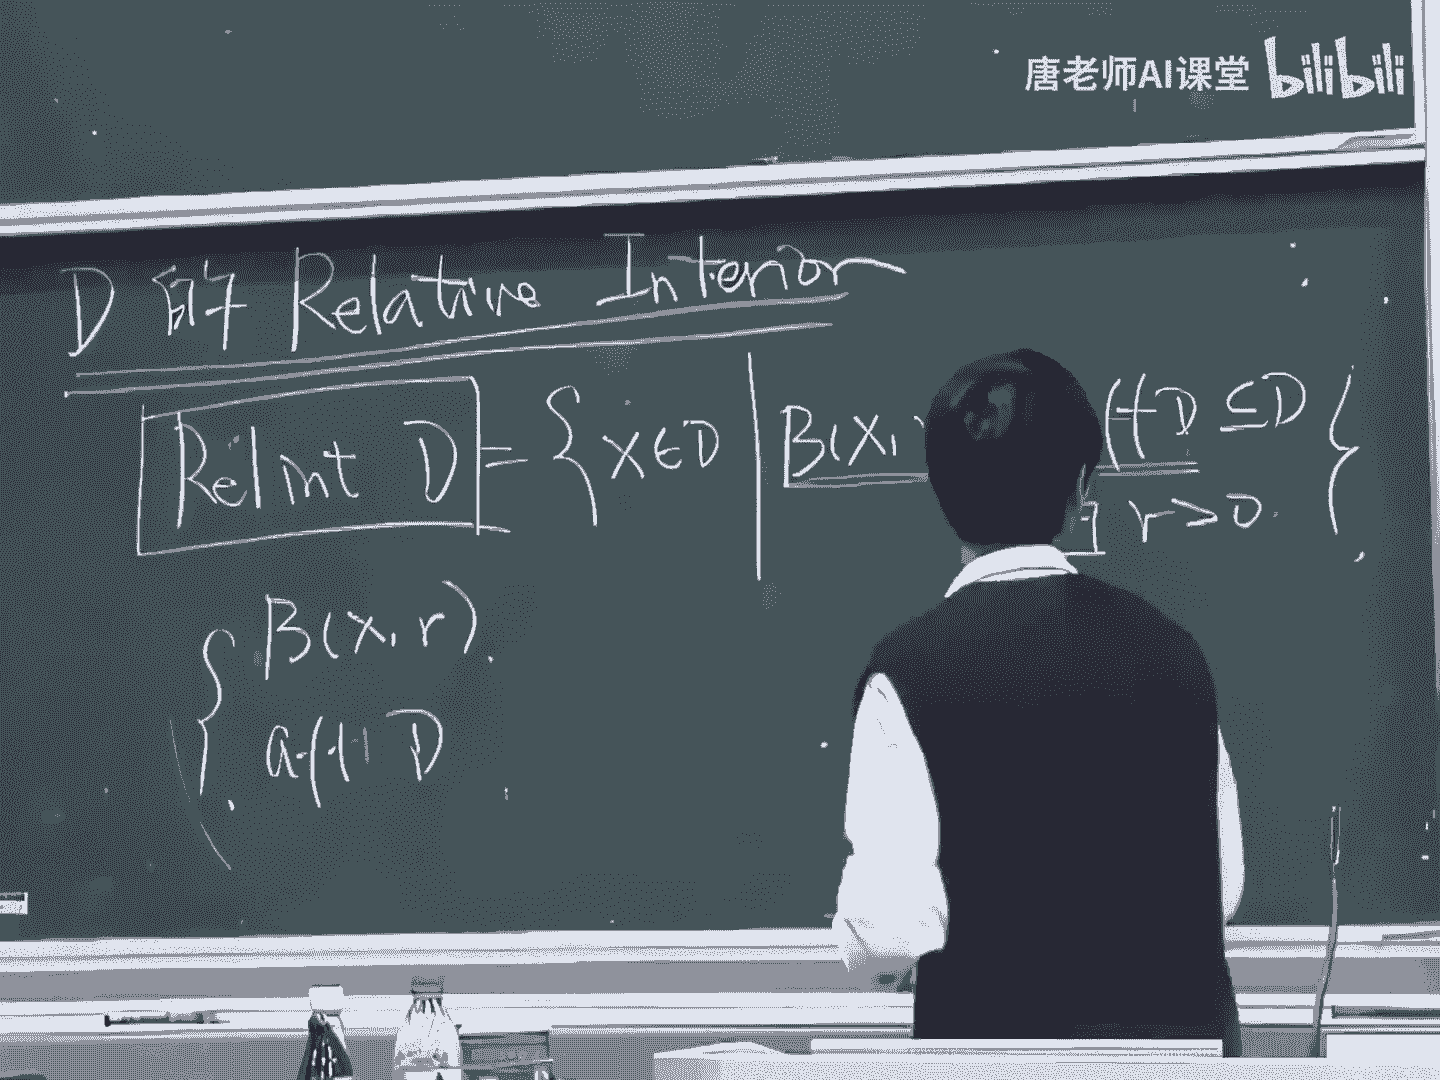 唐老师AI课堂 bilibili
D 的 Relative Interior
Relint D = { x∈D | B(x, ff D ⊆ D }
∃ r>0
B(x, r)
aff D